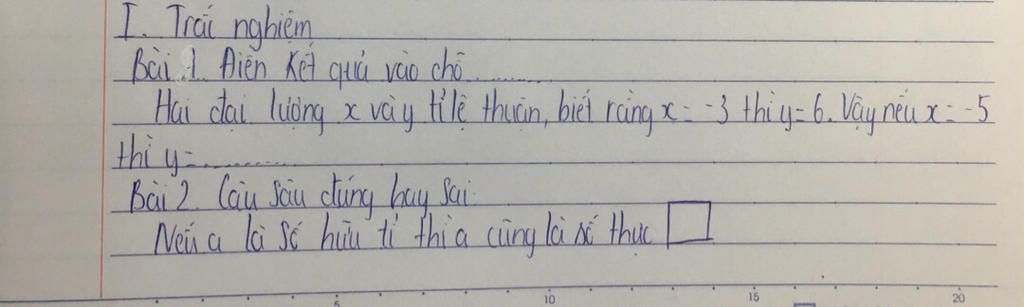 I. Trắc nghiệm
Bài 1. Điền kết quả vào chỗ ..........
Hai đại lượng x và y tỉ lệ thuận, biết rằng x = -3 thì y = 6. Vậy nếu x = -5
thì y = ..........
Bài 2. Câu sau đúng hay sai:
Nếu a là số hữu tỉ thì a cũng là số thực
5 10 15 20